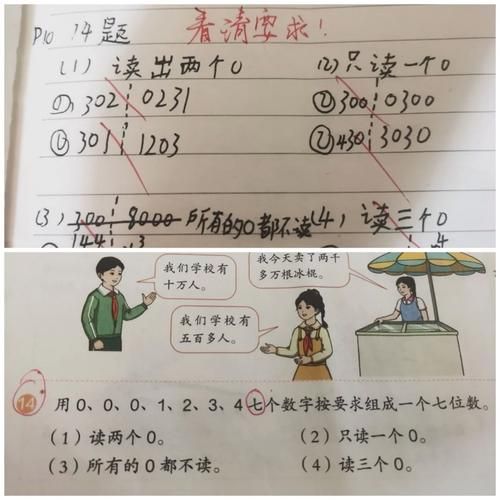 P10 14题 看清要求!
(1) 读出两个0 (2) 只读一个0
① 302 0231 ② 300 0300
① 301 1203 ② 430 3030
(3) 300 8000 所有的0都不读 (4) 读三个0
144 3 4
我们学校有
十万人。
我今天卖了两千
多万根冰棍。
我们学校有
五百多人。
14 用0、0、0、1、2、3、4七个数字按要求组成一个七位数。
(1)读两个0。 (2)只读一个0。
(3)所有的0都不读。 (4)读三个0。